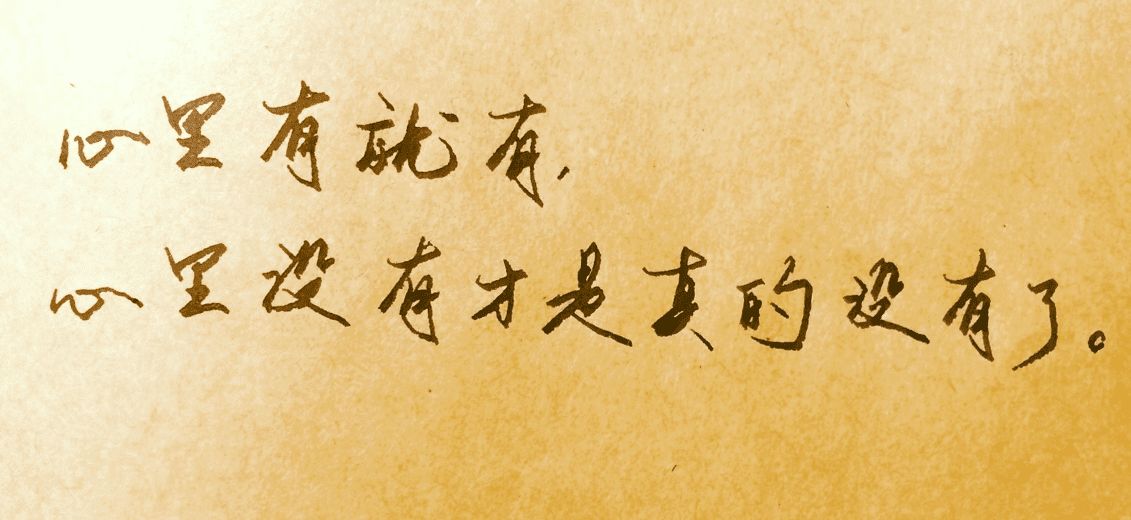 心里有就有,
心里没有才是真的没有了。